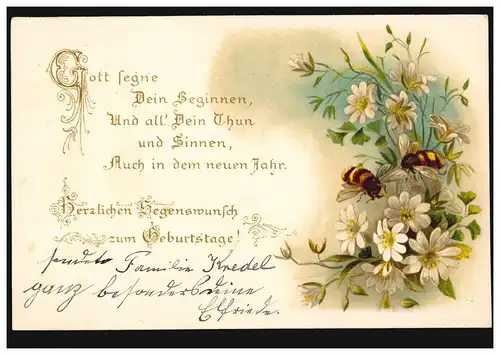 Gott segne
Dein Beginnen,
Und all' Dein Thun
und Sinnen,
Auch in dem neuen Jahr.
Herzlichen Segenswunsch
zum Geburtstage!
sendet Familie Kredel
ganz besonders deine
Elfriede.